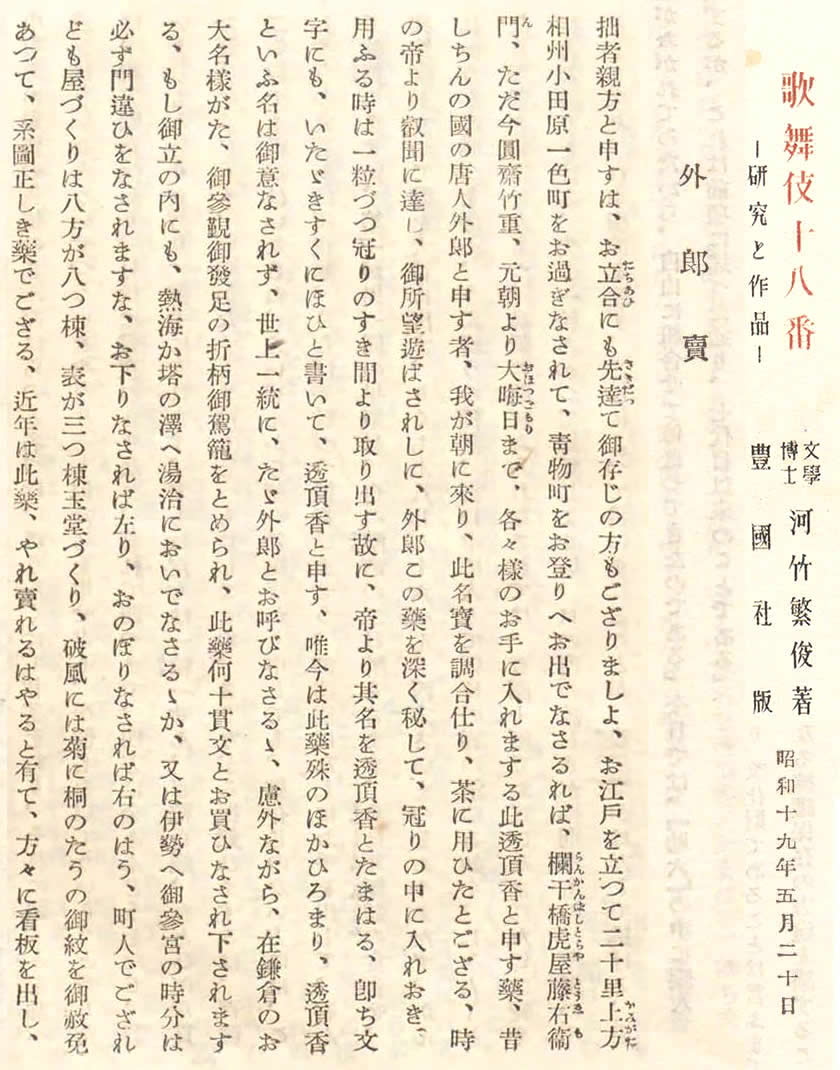 歌舞伎十八番
―研究と作品―
文學博士 河竹繁俊著
豊國社版
昭和十九年五月二十日
外郎賣
拙者親方と申すは、お立合にも先達て御存じの方もござりましよ、お江戸を立つて二十里上方
相州小田原一色町をお過ぎなされて、青物町をお登りへお出でなさるれば、欄干橋虎屋藤右衞
門、ただ今圓齋竹重、元朝より大晦日まで、各々樣のお手に入れまする此透頂香と申す藥、昔
しちんの國の唐人外郎と申す者、我が朝に來り、此名寶を調合仕り、茶に用ひたとござる、時
の帝より叡聞に達し、御所望遊ばされしに、外郎この藥を深く秘して、冠りの中に入れおき、
用ふる時は一粒づつ冠りのすき間より取り出す故に、帝より其名を透頂香とたまはる、卽ち文
字にも、いたゞきすくにほひと書いて、透頂香と申す、唯今は此藥殊のほかひろまり、透頂香
といふ名は御意なされず、世上一統に、たゞ外郎とお呼びなさるゝ、慮外ながら、在鎌倉のお
大名樣がた、御參覲御發足の折柄御駕籠をとめられ、此藥何十貫文とお買ひなされ下されます
る、もし御立の內にも、熱海か塔の澤へ湯治においでなさるゝか、又は伊勢へ御參宮の時分は
必ず門違ひをなされますな、お下りなされば左り、おのぼりなされば右のはう、町人でござれ
ども屋づくりは八方が八つ棟、表が三つ棟玉堂づくり、破風には菊に桐のたうの御紋を御赦免
あつて、系圖正しき藥でござる、近年は此藥、やれ賣れるはやると有て、方々に看板を出し、